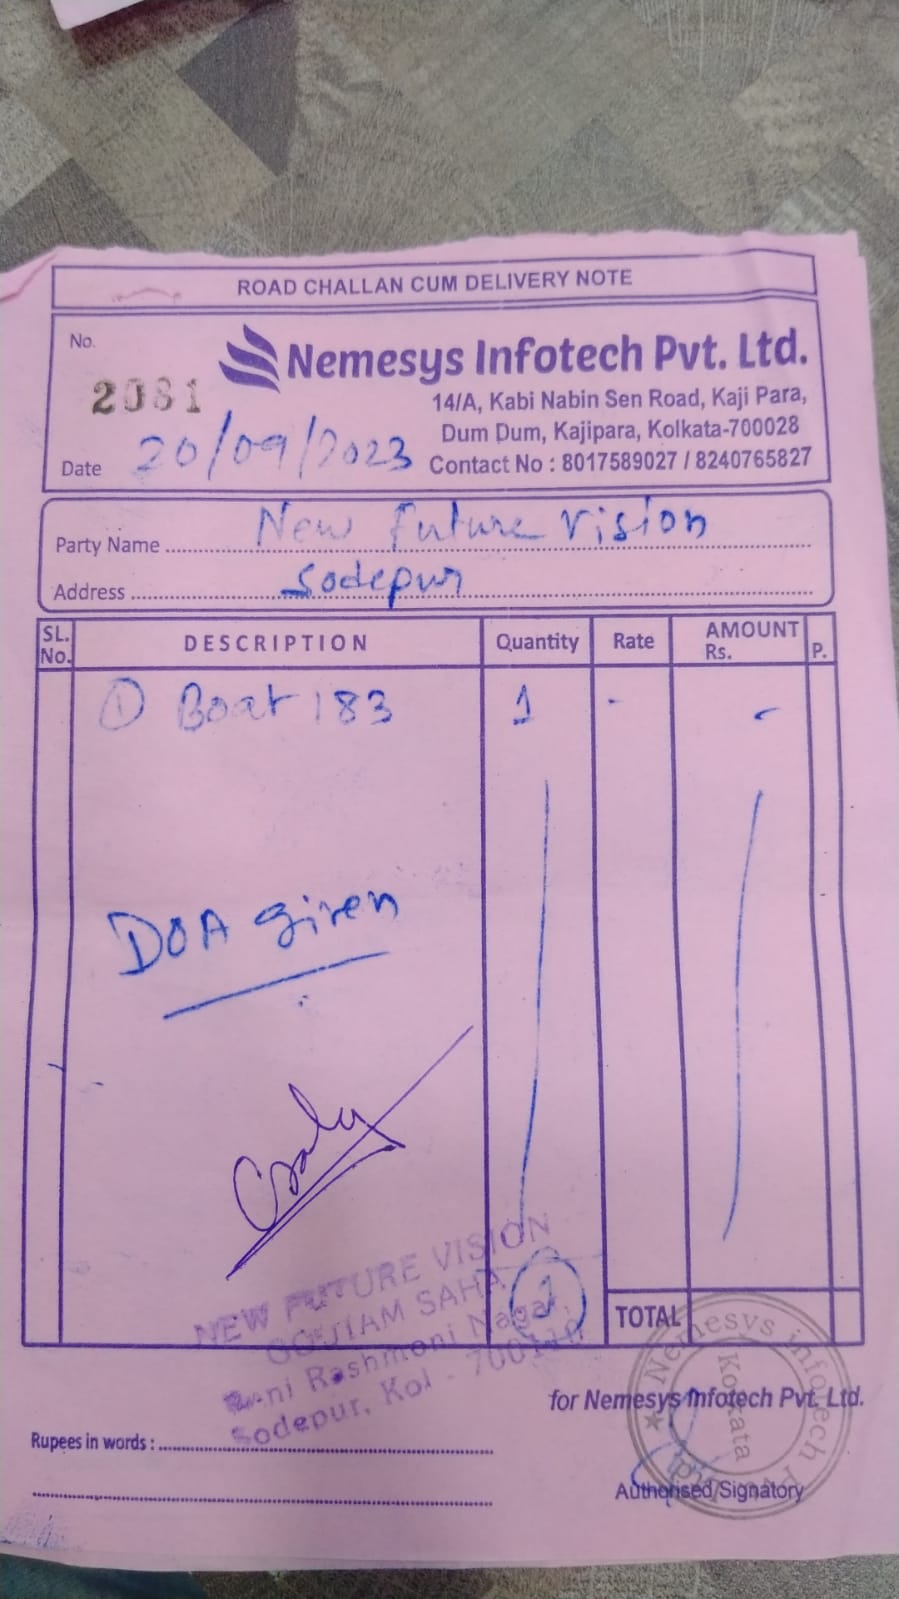 ROAD CHALLAN CUM DELIVERY NOTE
No.
2081
Nemesys Infotech Pvt. Ltd.
14/A, Kabi Nabin Sen Road, Kaji Para,
Dum Dum, Kajipara, Kolkata-700028
Date 20/09/2023
Contact No : 8017589027 / 8240765827
Party Name New Future Vision
Address Sodepur
SL. No. DESCRIPTION Quantity Rate AMOUNT Rs. P.
① Boat 183 1 - -
DOA given
NEW FUTURE VISION
GOUTAM SAHA
Rani Rashmoni Nagar,
Sodepur, Kol - 700110
1
TOTAL
Nemesys Infotech Kolkata
for Nemesys Infotech Pvt. Ltd.
Rupees in words :
Authorised Signatory